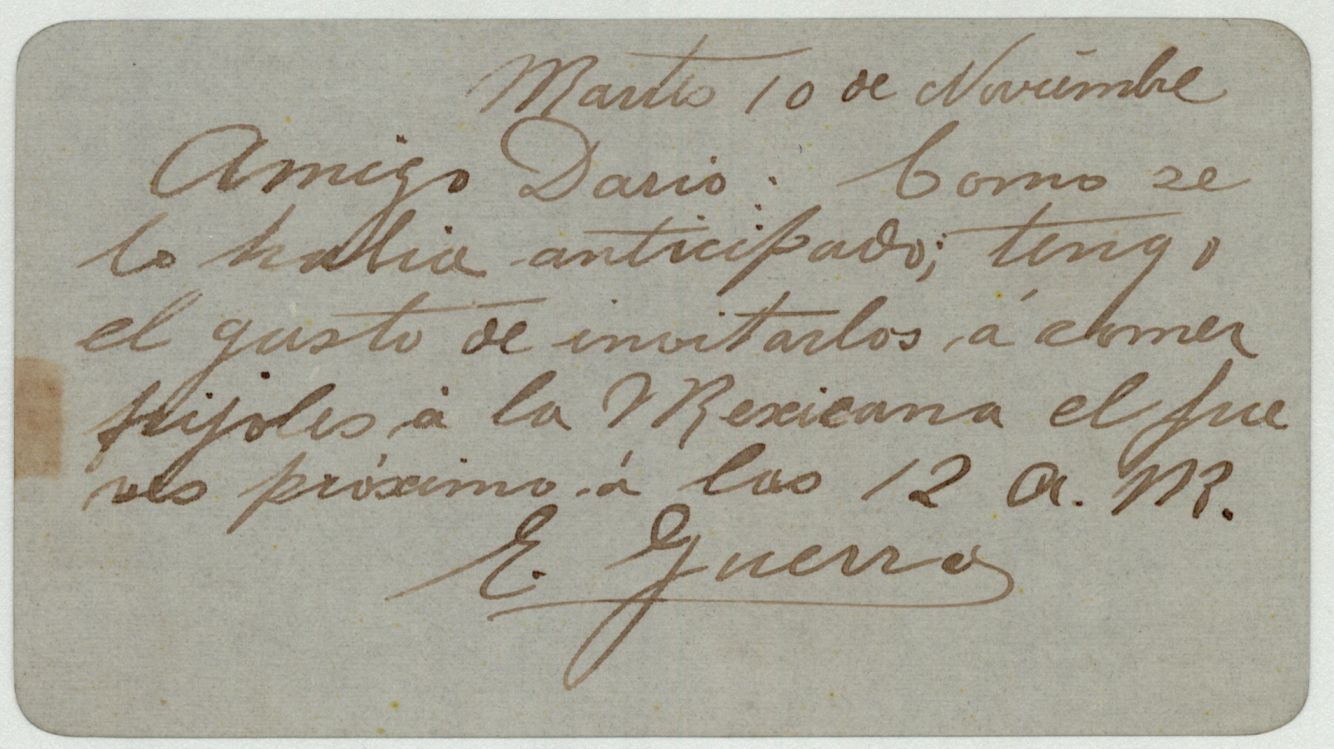 Martes 10 de Noviembre
Amigo Dario: Como se
lo habia anticipado; tengo
el gusto de invitarlos á comer
frijoles á la Mexicana el jue
ves próximo á las 12 A. M.
E. Guerra